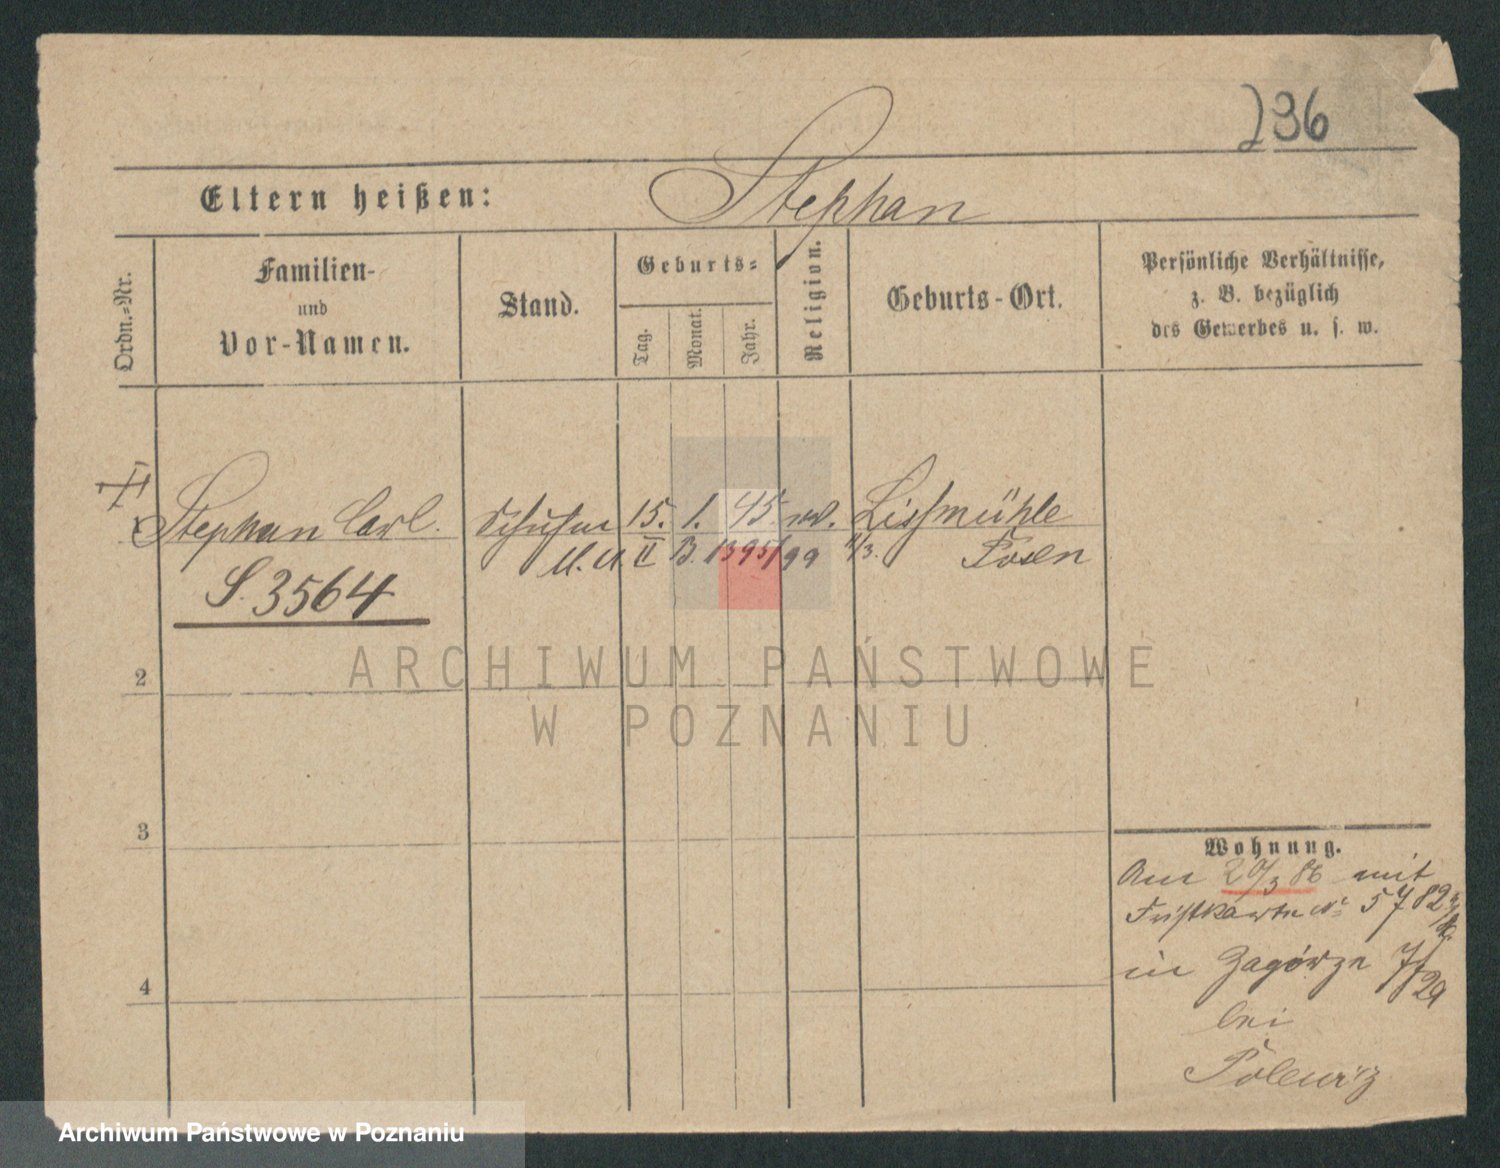 236
Eltern heißen: Stephan
Ordn.-Nr.
Familien-
und
Vor-Namen.
Stand.
Geburts-
Tag.
Monat.
Jahr.
Religion.
Geburts-Ort.
Persönliche Verhältnisse,
z. B. bezüglich
des Gewerbes u. s. w.
1 Stephan Carl. 15. 1. 45. Lissmühle
II B. 1395/99 Posen
S. 3564
2
3
4
Wohnung.
Am 20/3 86 mit
Fristkarte No 5782
in Zagórze 7/
29
bei
ARCHIWUM PAŃSTWOWE
W POZNANIU
Archiwum Państwowe w Poznaniu